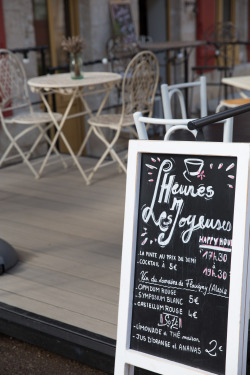 Les
Heures
Joyeuses
HAPPY HOUR
17h30
à
19h30
LA PINTE AU PRIX DU DEMI
COCKTAIL à 5€
Vin du domaine de Flavigny/Alésia
OPPIDUM ROUGE
SYMPOSIUM BLANC 5€
GRESILLUM ROUGE 4€
Soft
- LIMONADE & THÉ maison
- JUS D'ORANGE et ANANAS 2€